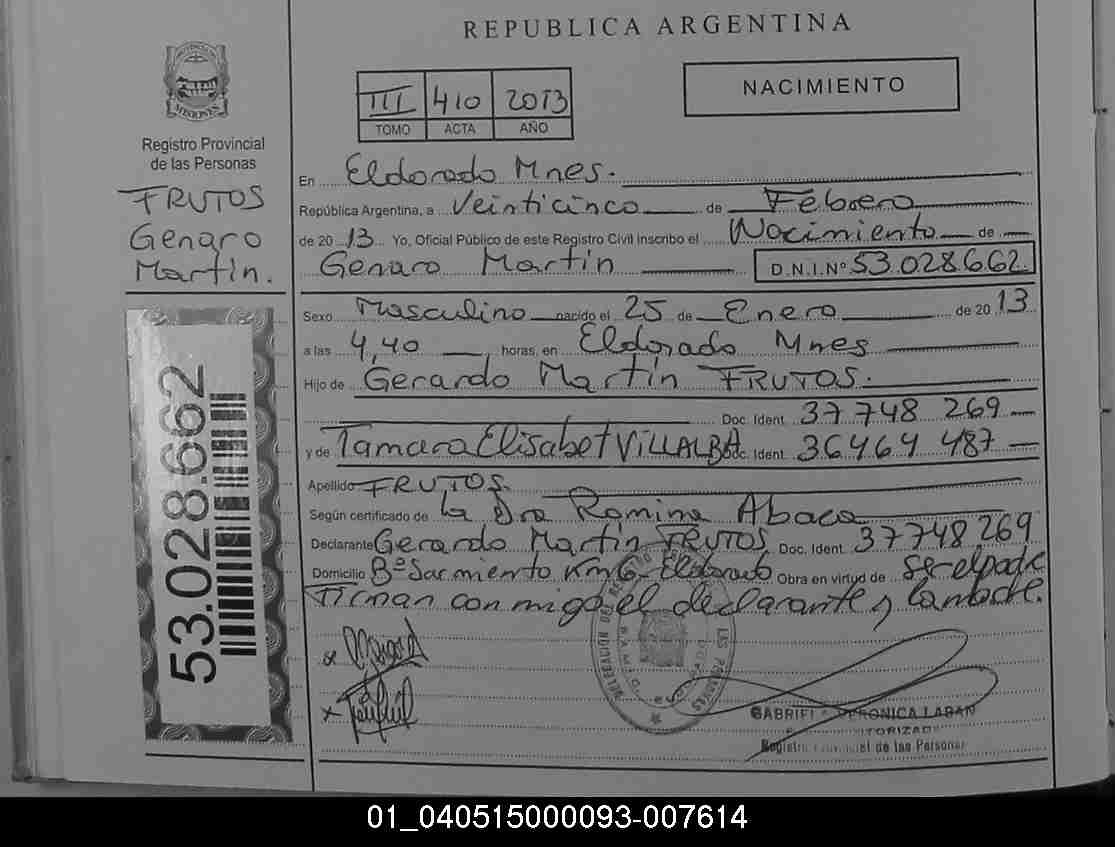 REPUBLICA ARGENTINA
NACIMIENTO
III 410 2013
TOMO ACTA AÑO
MISIONES
Registro Provincial
de las Personas
FRUTOS
Genaro
Martin.
53.028.662
En Eldorado Mnes.
República Argentina, a Veinticinco de Febrero
de 20 13 Yo, Oficial Público de este Registro Civil inscribo el Nacimiento de
Genaro Martin D.N.I.Nº 53.028.662
Sexo Masculino nacido el 25 de Enero de 20 13
a las 4,40 horas, en Eldorado Mnes
Hijo de Gerardo Martin FRUTOS.
Doc. Ident. 37 748 269
y de Tamara Elisabet VILLALBA Doc. Ident. 36 464 487
Apellido FRUTOS.
Según certificado de la Dra Romina Abaca
Declarante Gerardo Martin FRUTOS Doc. Ident. 37748 269
Domicilio Bº Sarmiento Km6- Eldorado Obra en virtud de ser el padre
Firman con migo el declarante y la madre.
GABRIELA VERONICA LABAN
Registro Provincial de las Personas
01_040515000093-007614